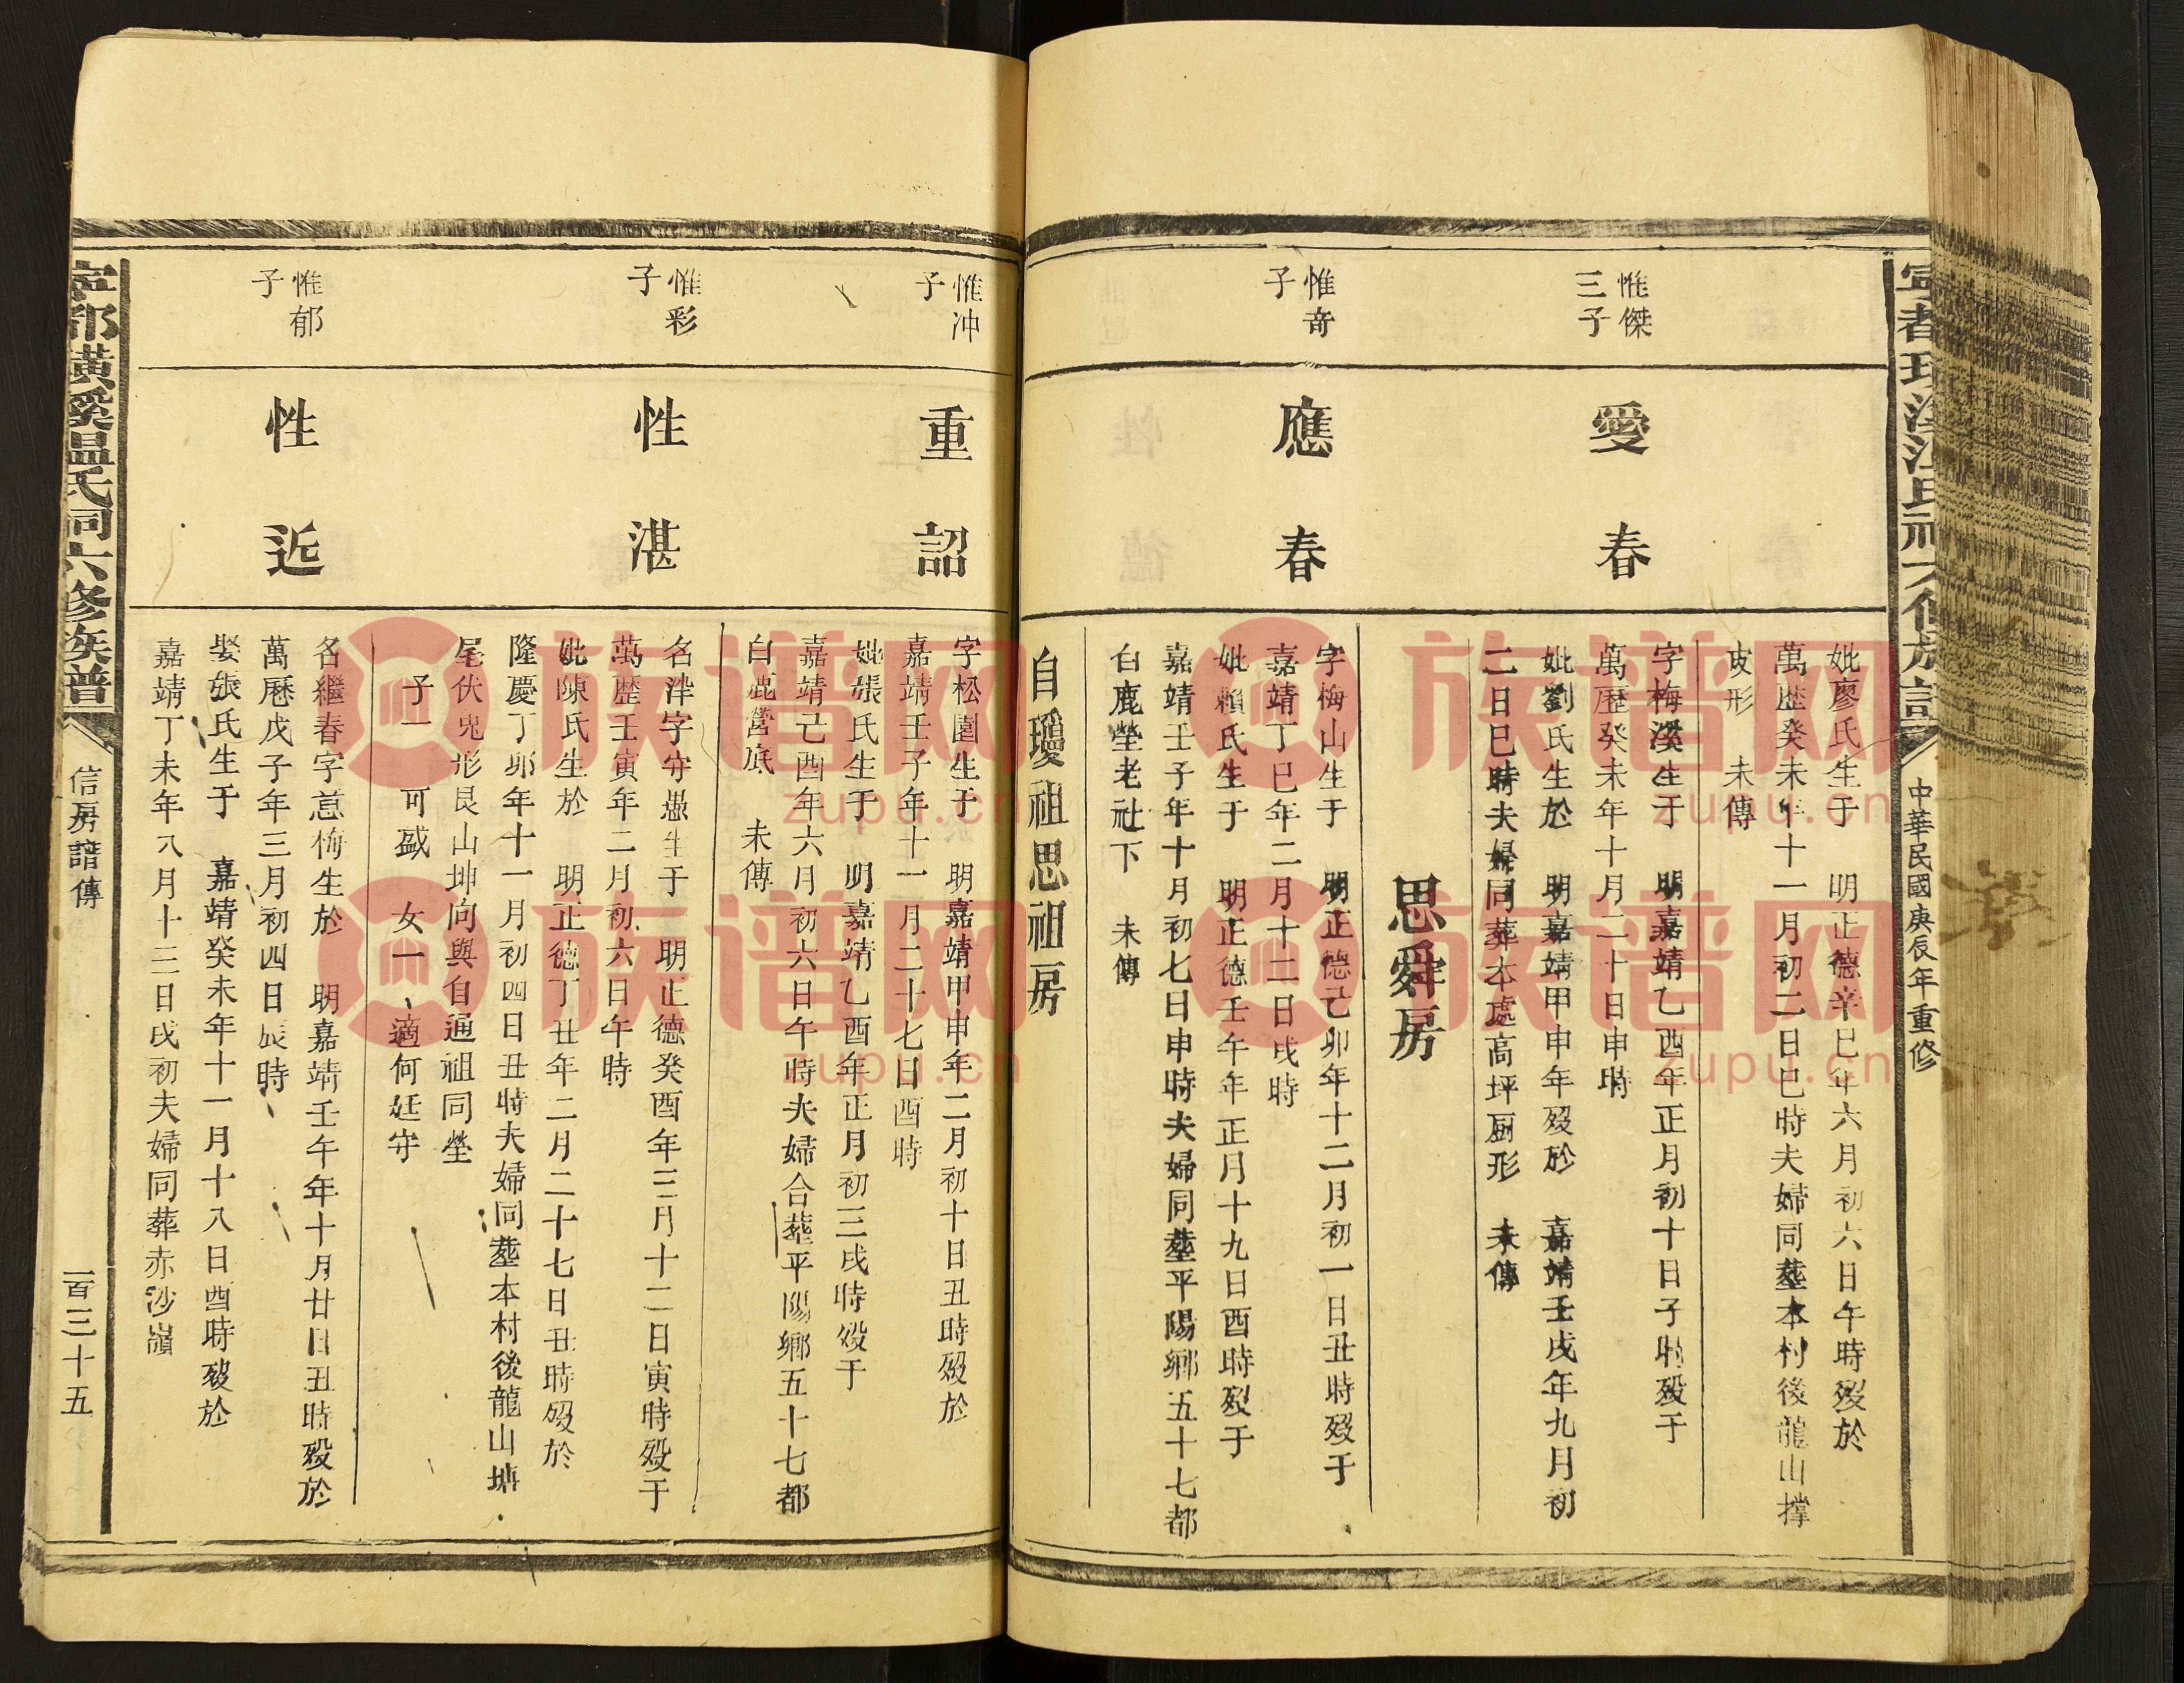 中華民國庚辰年重修
妣廖氏生于 明正德辛巳年六月初六日午時歿於
萬歷癸未年十一月初二日巳時夫婦同塟本村後龍山撑
皮形 未傳
惟傑
三子
愛春
字梅溪生于 明嘉靖乙酉年正月初十日子時歿于
萬歷癸未年十月二十日申時
妣劉氏生於 明嘉靖甲申年歿於 嘉靖壬戌年九月初
二日巳時夫婦同葬本處高坪厨形 未傳
思舜房
惟奇
子
應春
字梅山生于 明正德己卯年十二月初一日丑時歿于
嘉靖丁巳年二月十二日戌時
妣賴氏生于 明正德壬午年正月十九日酉時歿于
嘉靖壬子年十月初七日申時夫婦同塟平陽鄉五十七都
白鹿塋老社下 未傳
自瓊祖思祖房
惟冲
子
重詔
字松園生于 明嘉靖甲申年二月初十日丑時歿於
嘉靖壬子年十一月二十七日酉時
妣張氏生于 明嘉靖乙酉年正月初三戌時歿于
嘉靖己酉年六月初六日午時夫婦合塟平陽鄉五十七都
白鹿營底 未傳
惟彩
子
性湛
名泮字守愚生于 明正德癸酉年三月十二日寅時歿于
萬歷壬寅年二月初六日午時
妣陳氏生於 明正德丁丑年二月二十七日丑時歿於
隆慶丁卯年十一月初四日丑時夫婦同塟本村後龍山塘
尾伏兎形艮山坤向與自通祖同塋
子一 可盛 女一 適何廷守
惟郁
子
性近
名繼春字意梅生於 明嘉靖壬午年十月廿日丑時歿於
萬歷戊子年三月初四日辰時
娶張氏生于 嘉靖癸未年十一月十八日酉時歿於
嘉靖丁未年八月十三日戌初夫婦同葬赤沙嶺
寧都璜溪温氏祠六修族譜
信房譜傳
一百三十五
族谱网
zupu.cn
族谱网
zupu.cn
族谱网
zupu.cn
族谱网
zupu.cn